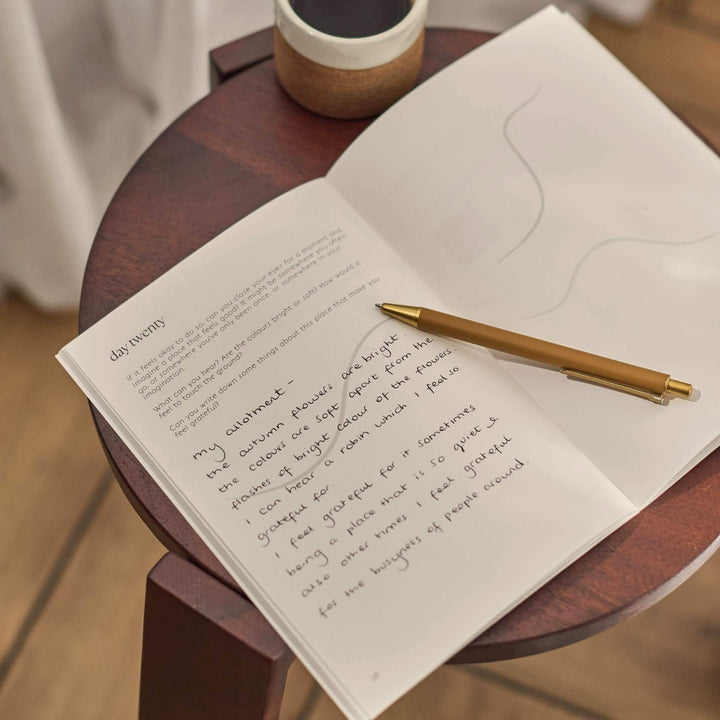 day twenty
If it feels okay to do so, can you close your eyes for a moment and
imagine a place that feels good? It might be somewhere you often
go, or somewhere you've only been once, or somewhere in your
imagination.
What can you hear? Are the colours bright or soft? How would it
feel to touch the ground?
Can you write down some things about this place that make you
feel grateful?
my allotment -
the autumn flowers are bright
the colours are soft apart from the
flashes of bright colour of the flowers.
I can hear a robin which I feel so
grateful for.
I feel grateful for it sometimes
being a place that is so quiet &
also other times I feel grateful
for the busyness of people around.